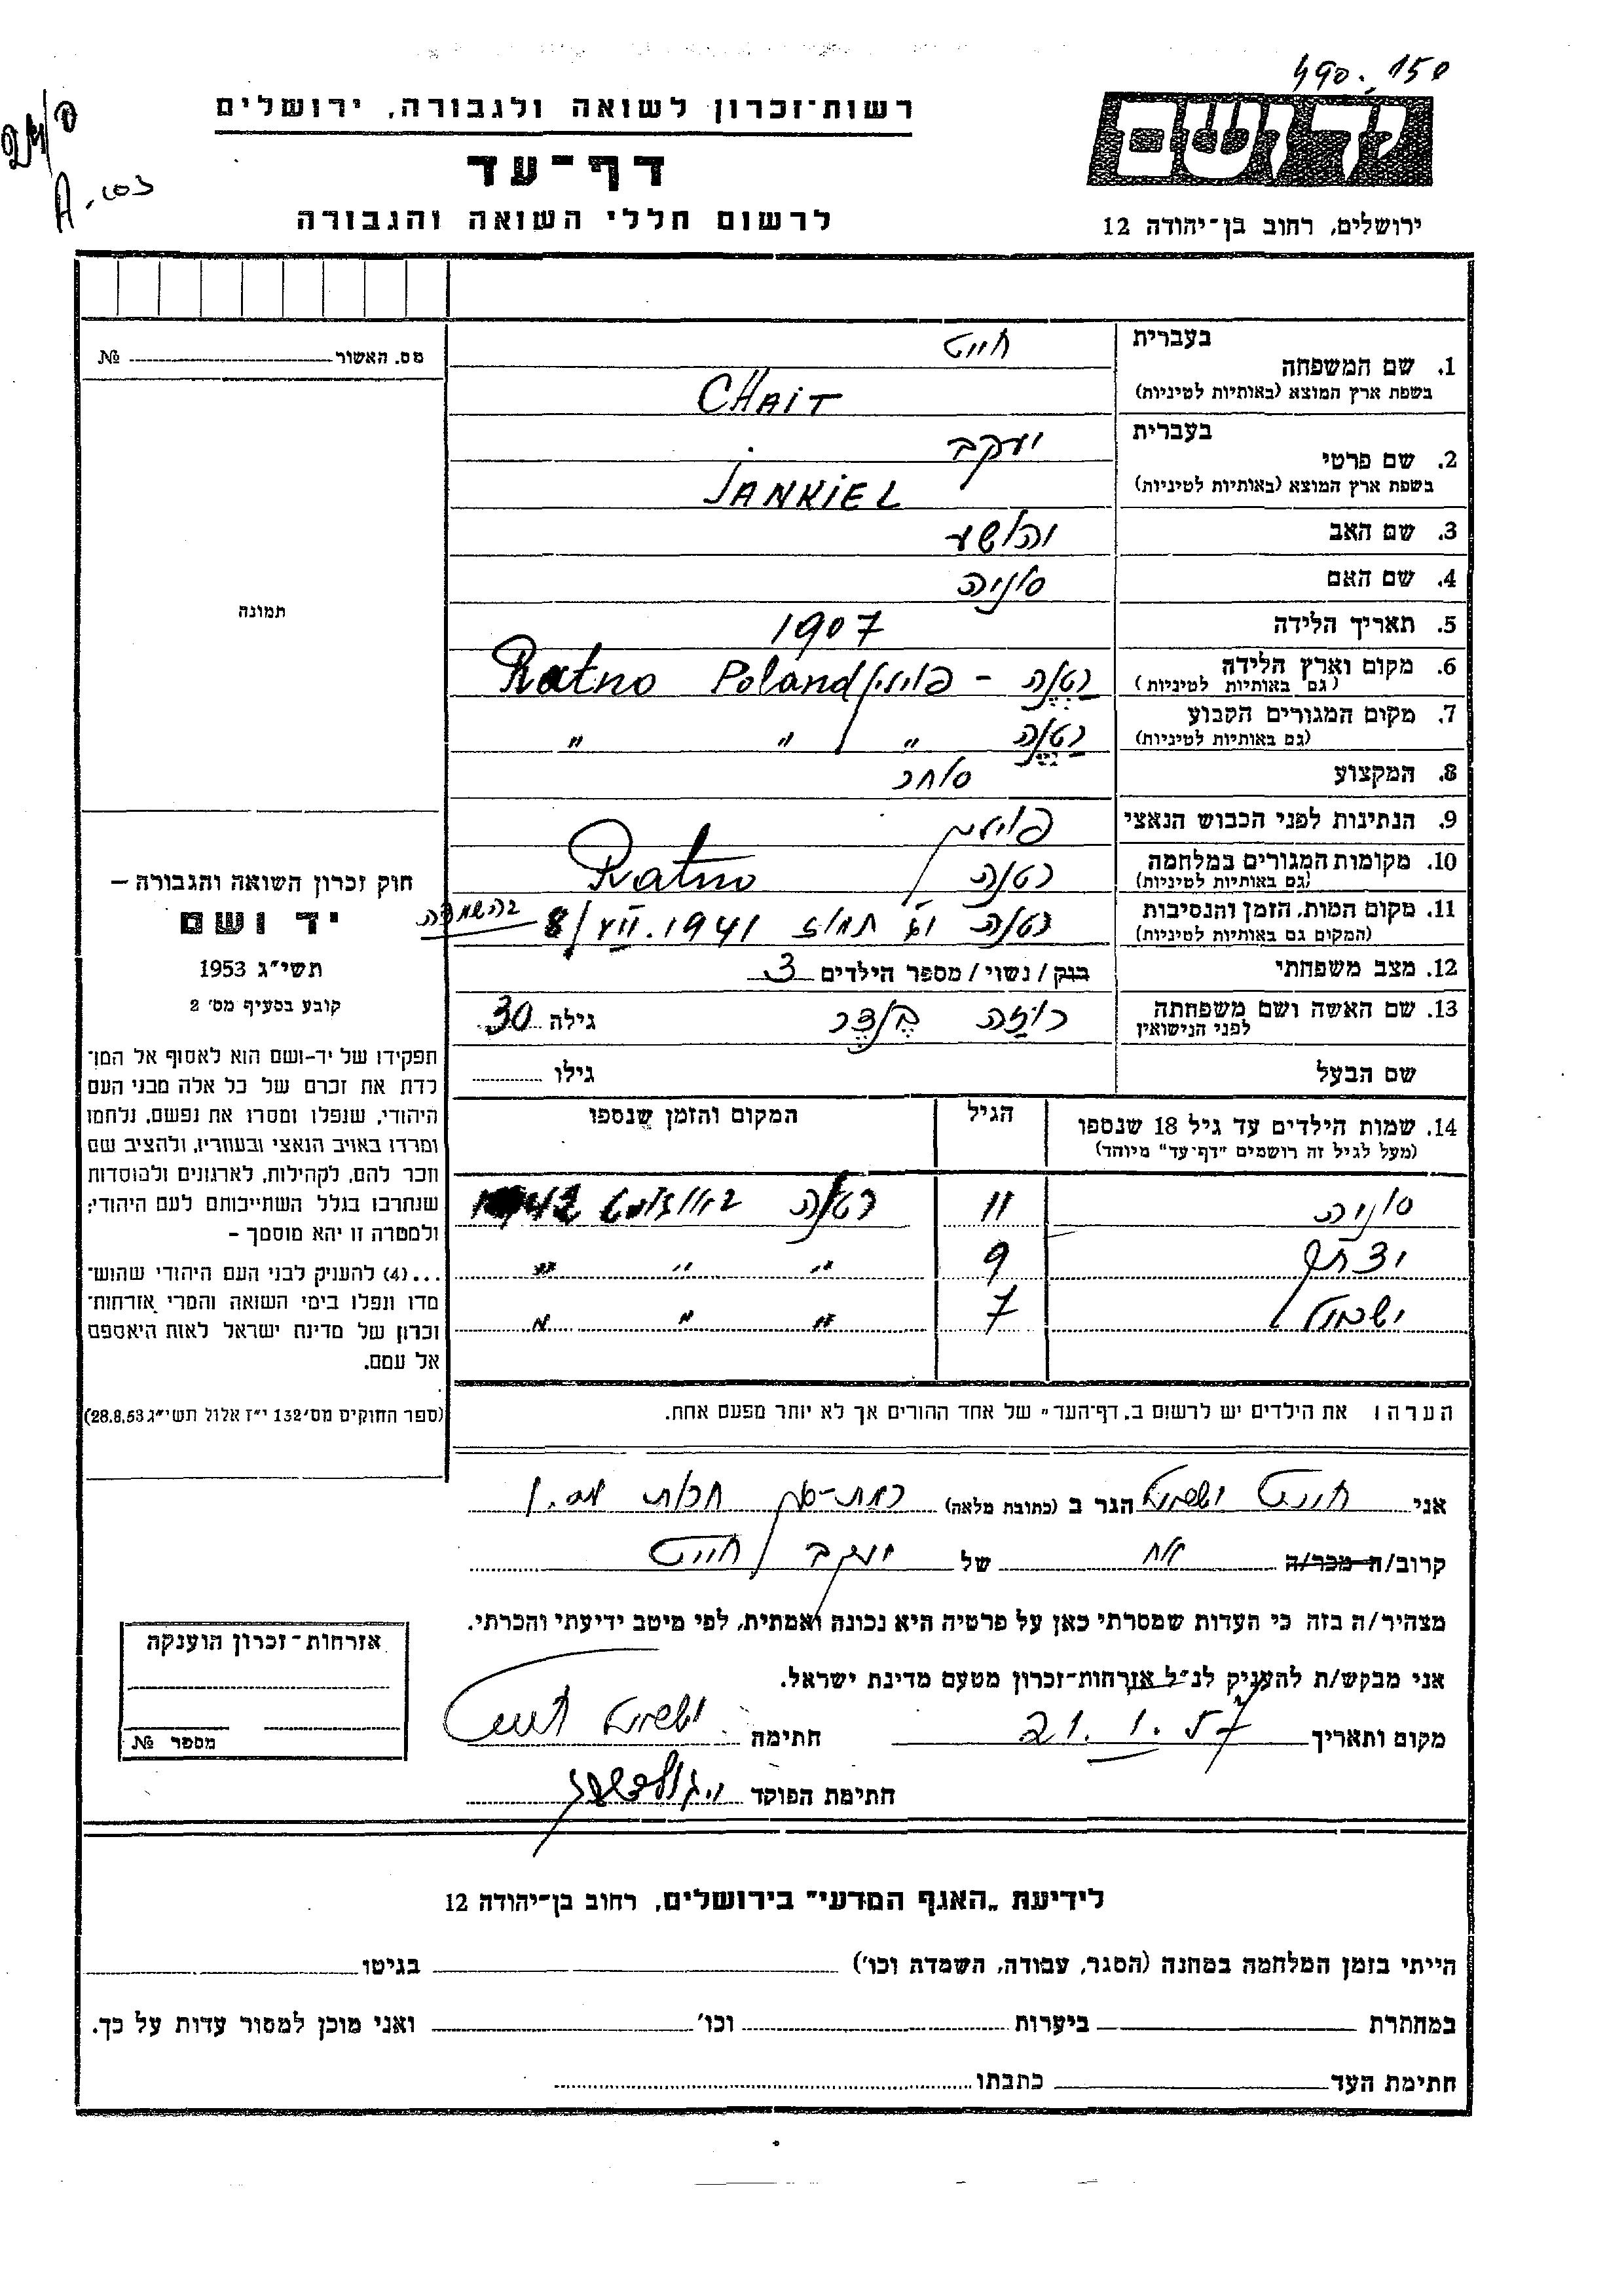 490. 150
24/0
A. 003
יד ושם
ירושלים, רחוב בן־יהודה 12
רשות־זכרון לשואה ולגבורה, ירושלים
דף־עד
לרשום חללי השואה והגבורה
מס. האשור № 
תמונה
1. שם המשפחה בעברית חייט
בשפת ארץ המוצא (באותיות לטיניות) CHAiT
2. שם פרטי בעברית יעקב
בשפת ארץ המוצא (באותיות לטיניות) JANKiEL
3. שם האב יהושע
4. שם האם סוניה
5. תאריך הלידה 1907
6. מקום וארץ הלידה (גם באותיות לטיניות) רטנה - פולין Ratno Poland
7. מקום המגורים הקבוע (גם באותיות לטיניות) רטנה " " "
8. המקצוע סוחר
9. הנתינות לפני הכבוש הנאצי
10. מקומות המגורים במלחמה (גם באותיות לטיניות) רטנה Ratno
11. מקום המות, הזמן והנסיבות (המקום גם באותיות לטיניות) רטנה תמוז 8/VII.1941 בהשמדה
12. מצב משפחתי רוק / נשוי / מספר הילדים 3
13. שם האשה ושם משפחתה לפני הנישואין רויזה גילה 30
שם הבעל גילו
14. שמות הילדים עד גיל 18 שנספו הגיל המקום והזמן שנספו
(מעל לגיל זה רושמים "דף־עד" מיוחד)
סוניה 11 רטנה באוגוסט 1942
9 " " "
7 " " "
הערה: את הילדים יש לרשום ב"דף־העד" של אחד ההורים אך לא יותר מפעם אחת.
חוק זכרון השואה והגבורה —
יד ושם
תשי"ג 1953
קובע בסעיף מס' 2
תפקידו של יד-ושם הוא לאסוף אל המו־
לדת את זכרם של כל אלה מבני העם
היהודי, שנפלו ומסרו את נפשם, נלחמו
ומרדו באויב הנאצי ובעוזריו, ולהציב שם
וזכר להם, לקהילות, לארגונים ולמוסדות
שנחרבו בגלל השתייכותם לעם היהודי;
ולמטרה זו יהא מוסמך -
...(4) להעניק לבני העם היהודי שהוש־
מדו ונפלו בימי השואה והמרי אזרחות־
זכרון של מדינת ישראל לאות היאספם
אל עמם.
(ספר החוקים מס' 132 י"ז אלול תשי"ג 28.8.53)
אני חייט הגר ב (כתובת מלאה) רמת-גן
קרוב/ה מכר/ה אח של יעקב חייט
מצהיר/ה בזה כי העדות שמסרתי כאן על פרטיה היא נכונה ואמתית, לפי מיטב ידיעתי והכרתי.
אני מבקש/ת להעניק לנ"ל אזרחות־זכרון מטעם מדינת ישראל.
מקום ותאריך 21.1.57 חתימה
חתימת הפוקד
אזרחות־זכרון הוענקה
מספר №
לידיעת "האגף המדעי" בירושלים, רחוב בן־יהודה 12
הייתי בזמן המלחמה במחנה (הסגר, עבודה, השמדה וכו') בגיטו
במחתרת ביערות וכו' ואני מוכן למסור עדות על כך.
חתימת העד כתבתו